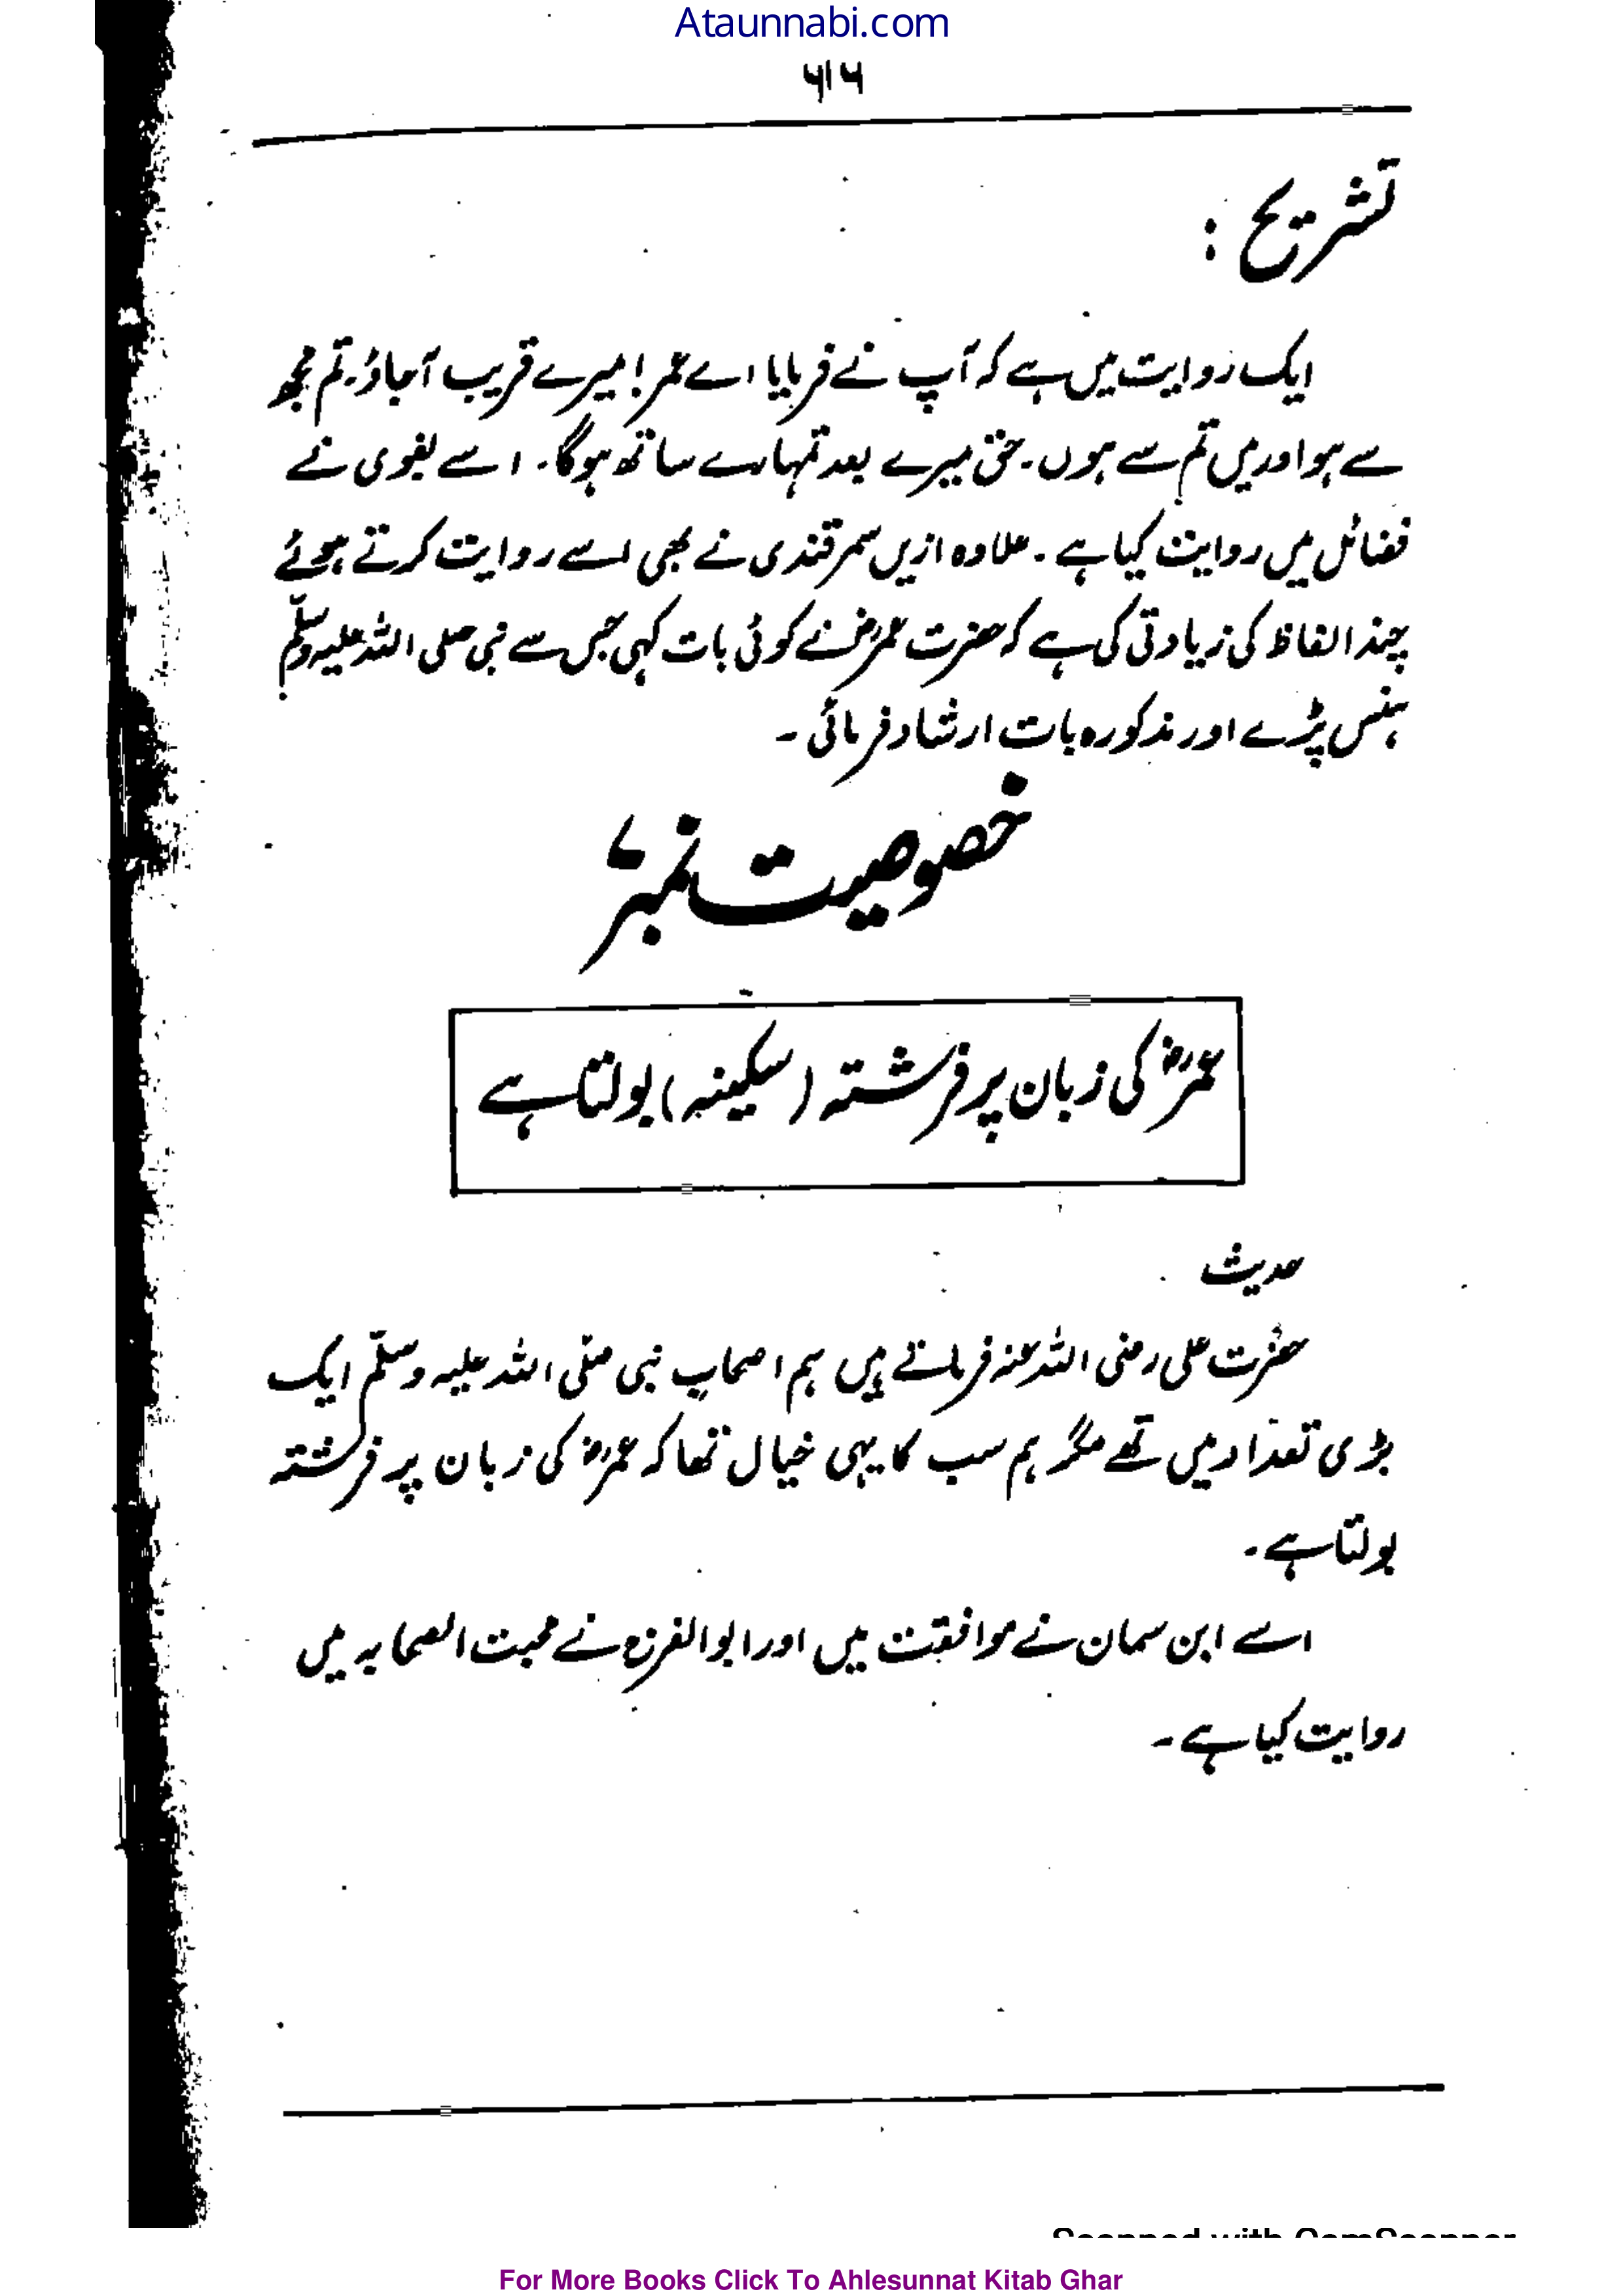 Ataunnabi.com
۵۱۵
تشریح :
ایک روایت میں ہے کہ آپ نے فرمایا اے عمر! میرے قریب آجاؤ۔ تم مجھ
سے ہو اور میں تم سے ہوں۔ حق میرے بعد تمہارے ساتھ ہوگا۔ اسے بغوی نے
فضائل میں روایت کیا ہے ۔ علاوہ ازیں سمرقندی نے بھی اسے روایت کرتے ہوئے
چند الفاظ کی زیادتی کی ہے کہ حضرت عمرؓ نے کوئی بات کہی جس سے نبی صلی اللہ علیہ وسلم
ہنس پڑے اور مذکورہ بات ارشاد فرمائی ۔
خصوصیت نمبر ۷
عمرؓ کی زبان پر فرشتہ (سکینہ) بولتا ہے
حدیث
حضرت علی رضی اللہ عنہ فرماتے ہیں ہم اصحابِ نبی صلّی اللہ علیہ وسلّم ایک
بڑی تعداد میں تھے مگر ہم سب کا یہی خیال تھا کہ عمرؓ کی زبان پر فرشتہ
بولتا ہے ۔
اسے ابن سمان نے موافقت میں اور ابوالفرج نے محبت الصحابہ میں
روایت کیا ہے ۔
Scanned with CamScanner
For More Books Click To Ahlesunnat Kitab Ghar